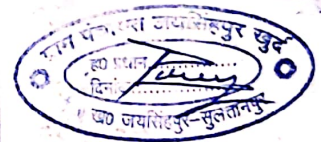 ग्राम पंचा. धरा जयसिंहपुर खुर्द
ह० प्रधान
दिनांक
ख० जयसिंहपुर-सुलतानपुर